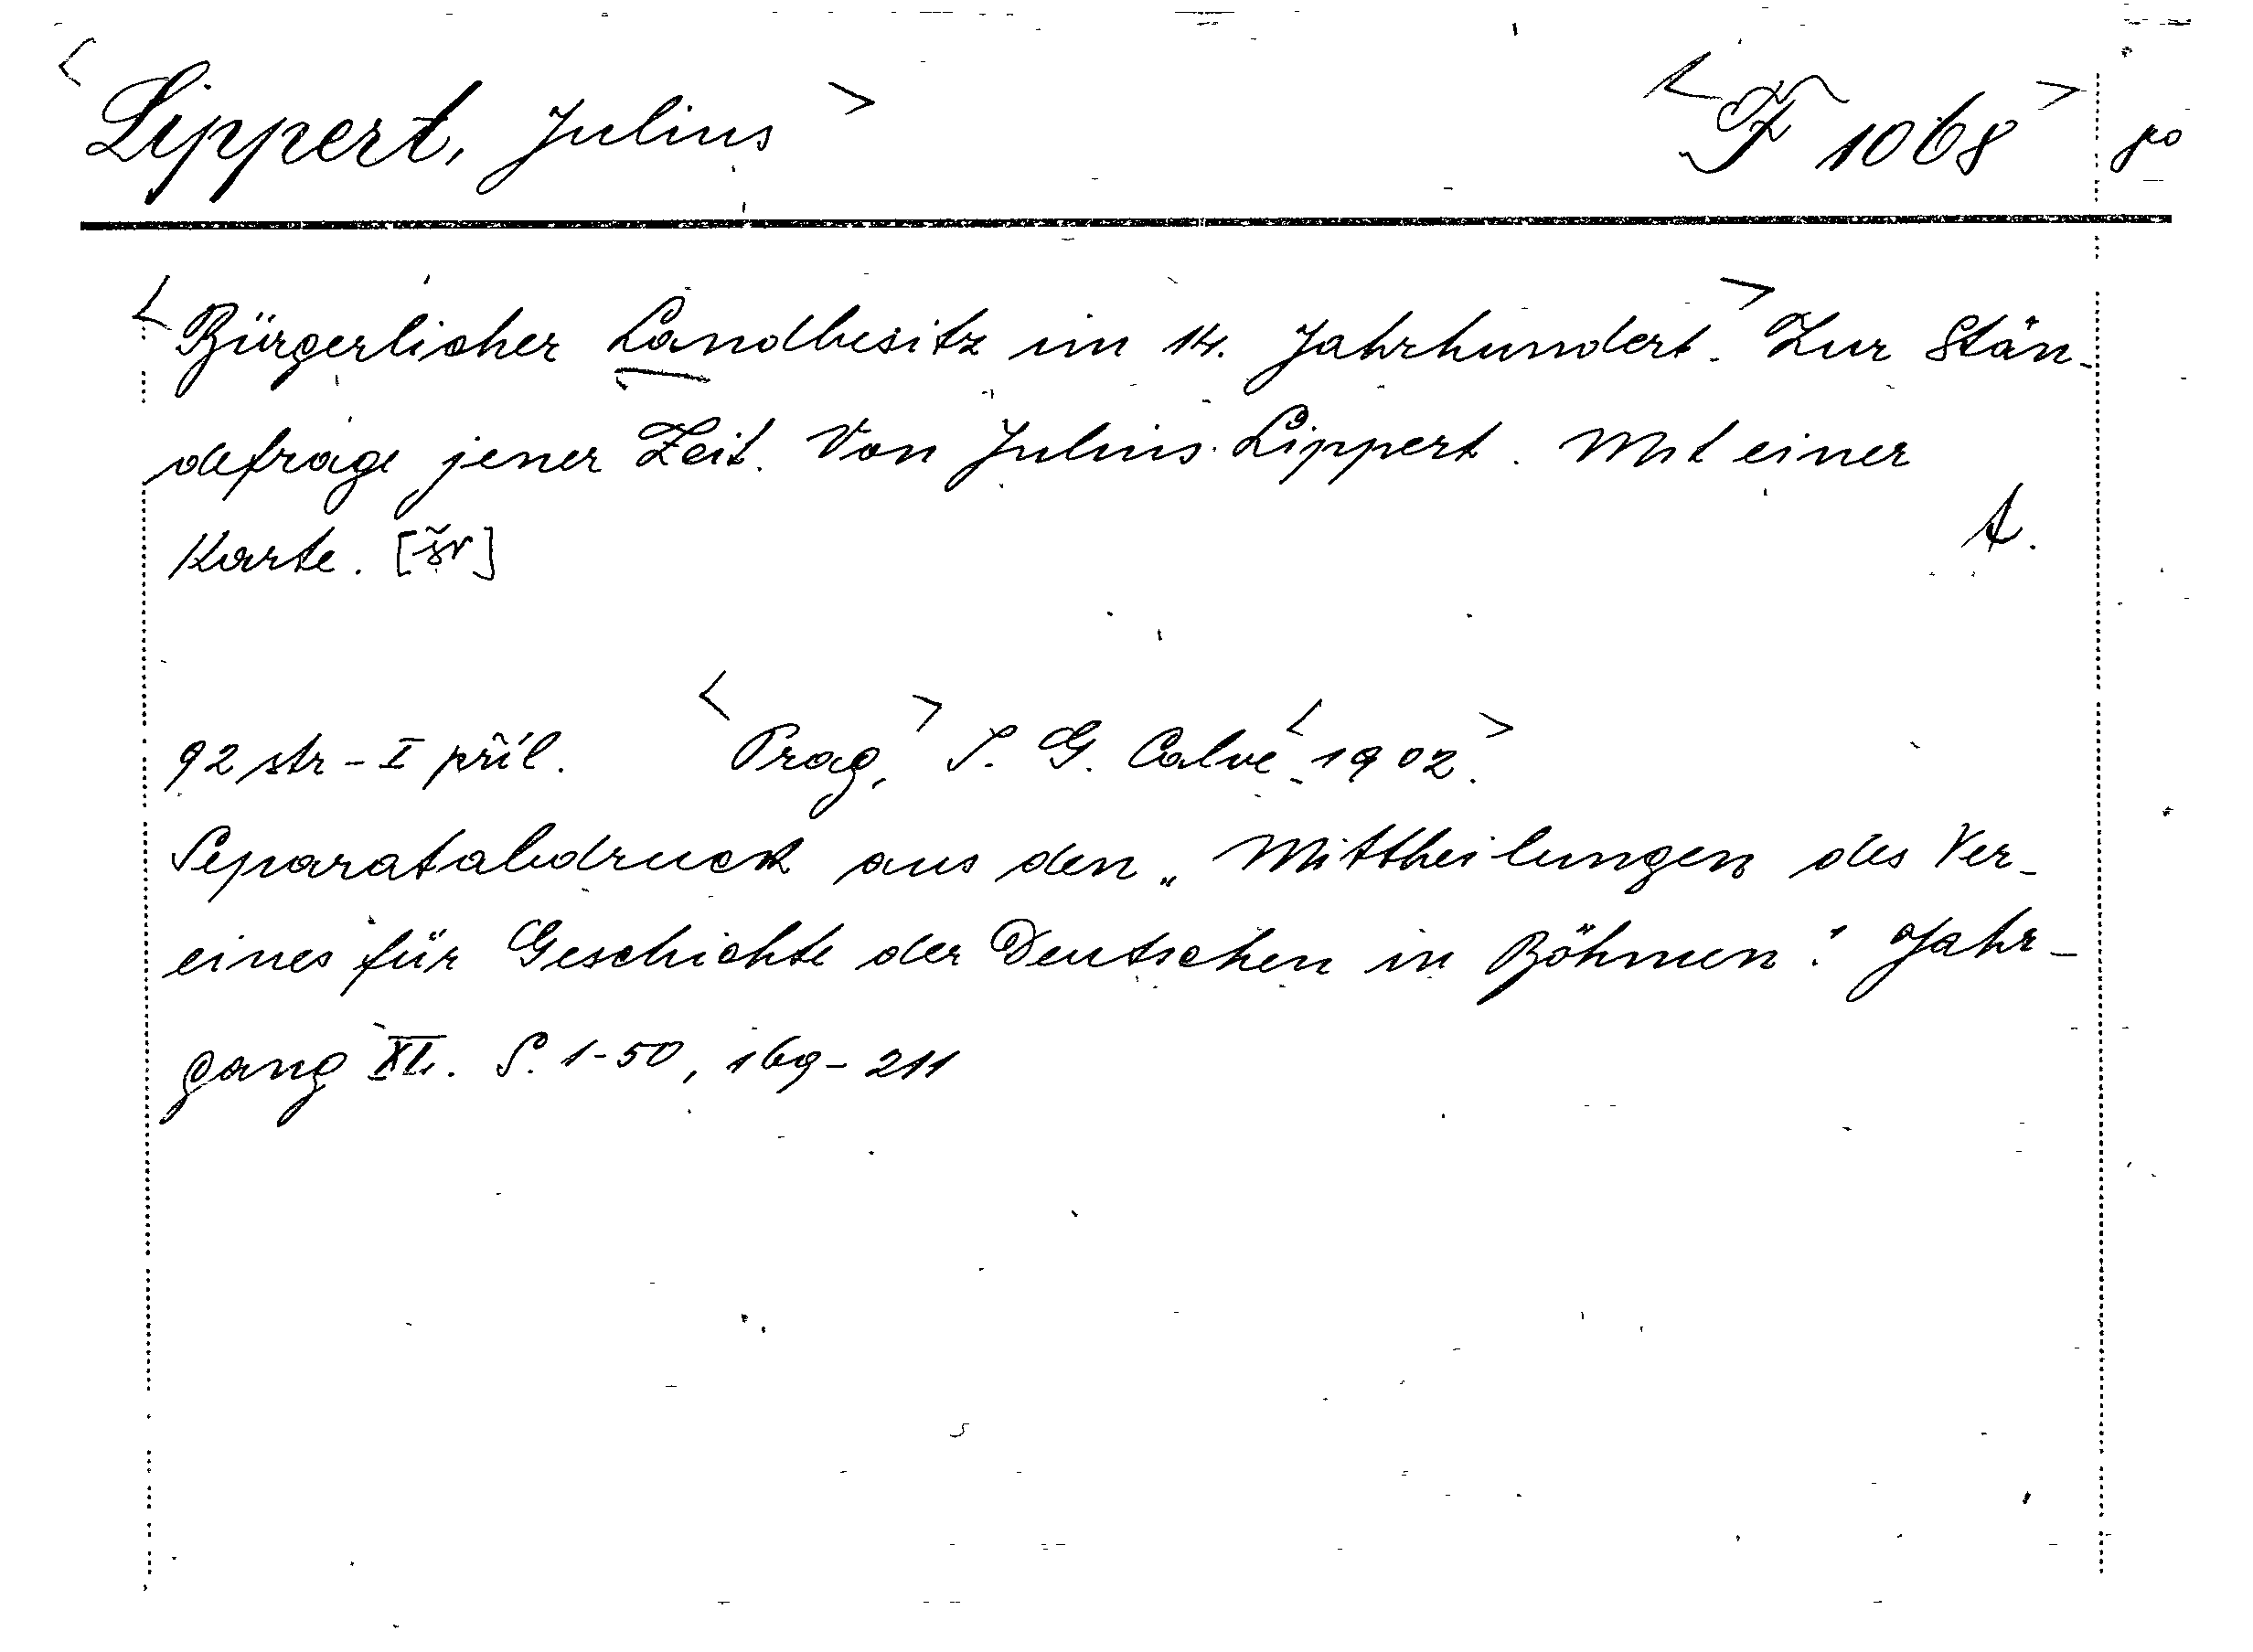 <Lippert, Julius> <F 1068> po
<Bürgerlicher Landbesitz im 14. Jahrhundert.> Zur Stän-
defrage jener Zeit. Von Julius Lippert. Mit einer
Karte. [šv] A.
92 str - I příl. <Prag,> J. G. Calve <1902.>
Separatabdruck aus den „Mittheilungen des Ver-
eines für Geschichte der Deutschen in Böhmen". Jahr-
gang XL. S. 1-50, 169-211